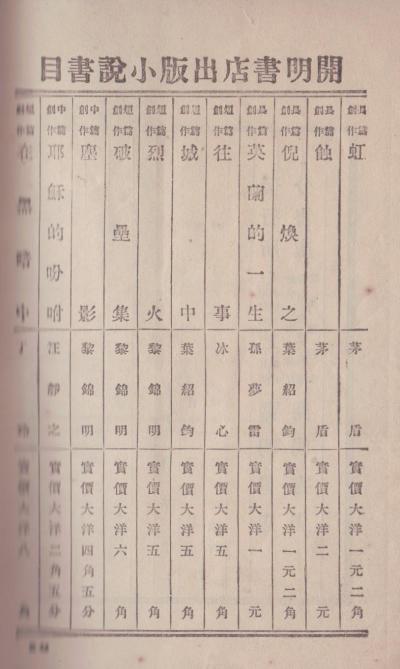 開明書店出版小說書目
長篇創作 虹 茅盾 實價大洋一元二角
長篇創作 蝕 茅盾 實價大洋二元
長篇創作 倪煥之 葉紹鈞 實價大洋一元二角
長篇創作 英蘭的一生 孫夢雷 實價大洋一元
短篇創作 往事 冰心 實價大洋五角
短篇創作 城中 葉紹鈞 實價大洋五角
短篇創作 烈火 黎錦明 實價大洋五角
短篇創作 破壘集 黎錦明 實價大洋六角
中篇創作 塵影 黎錦明 實價大洋四角五分
中篇創作 耶穌的吩咐 汪靜之 實價大洋二角五分
短篇創作 在黑暗中 丁玲 實價大洋八角